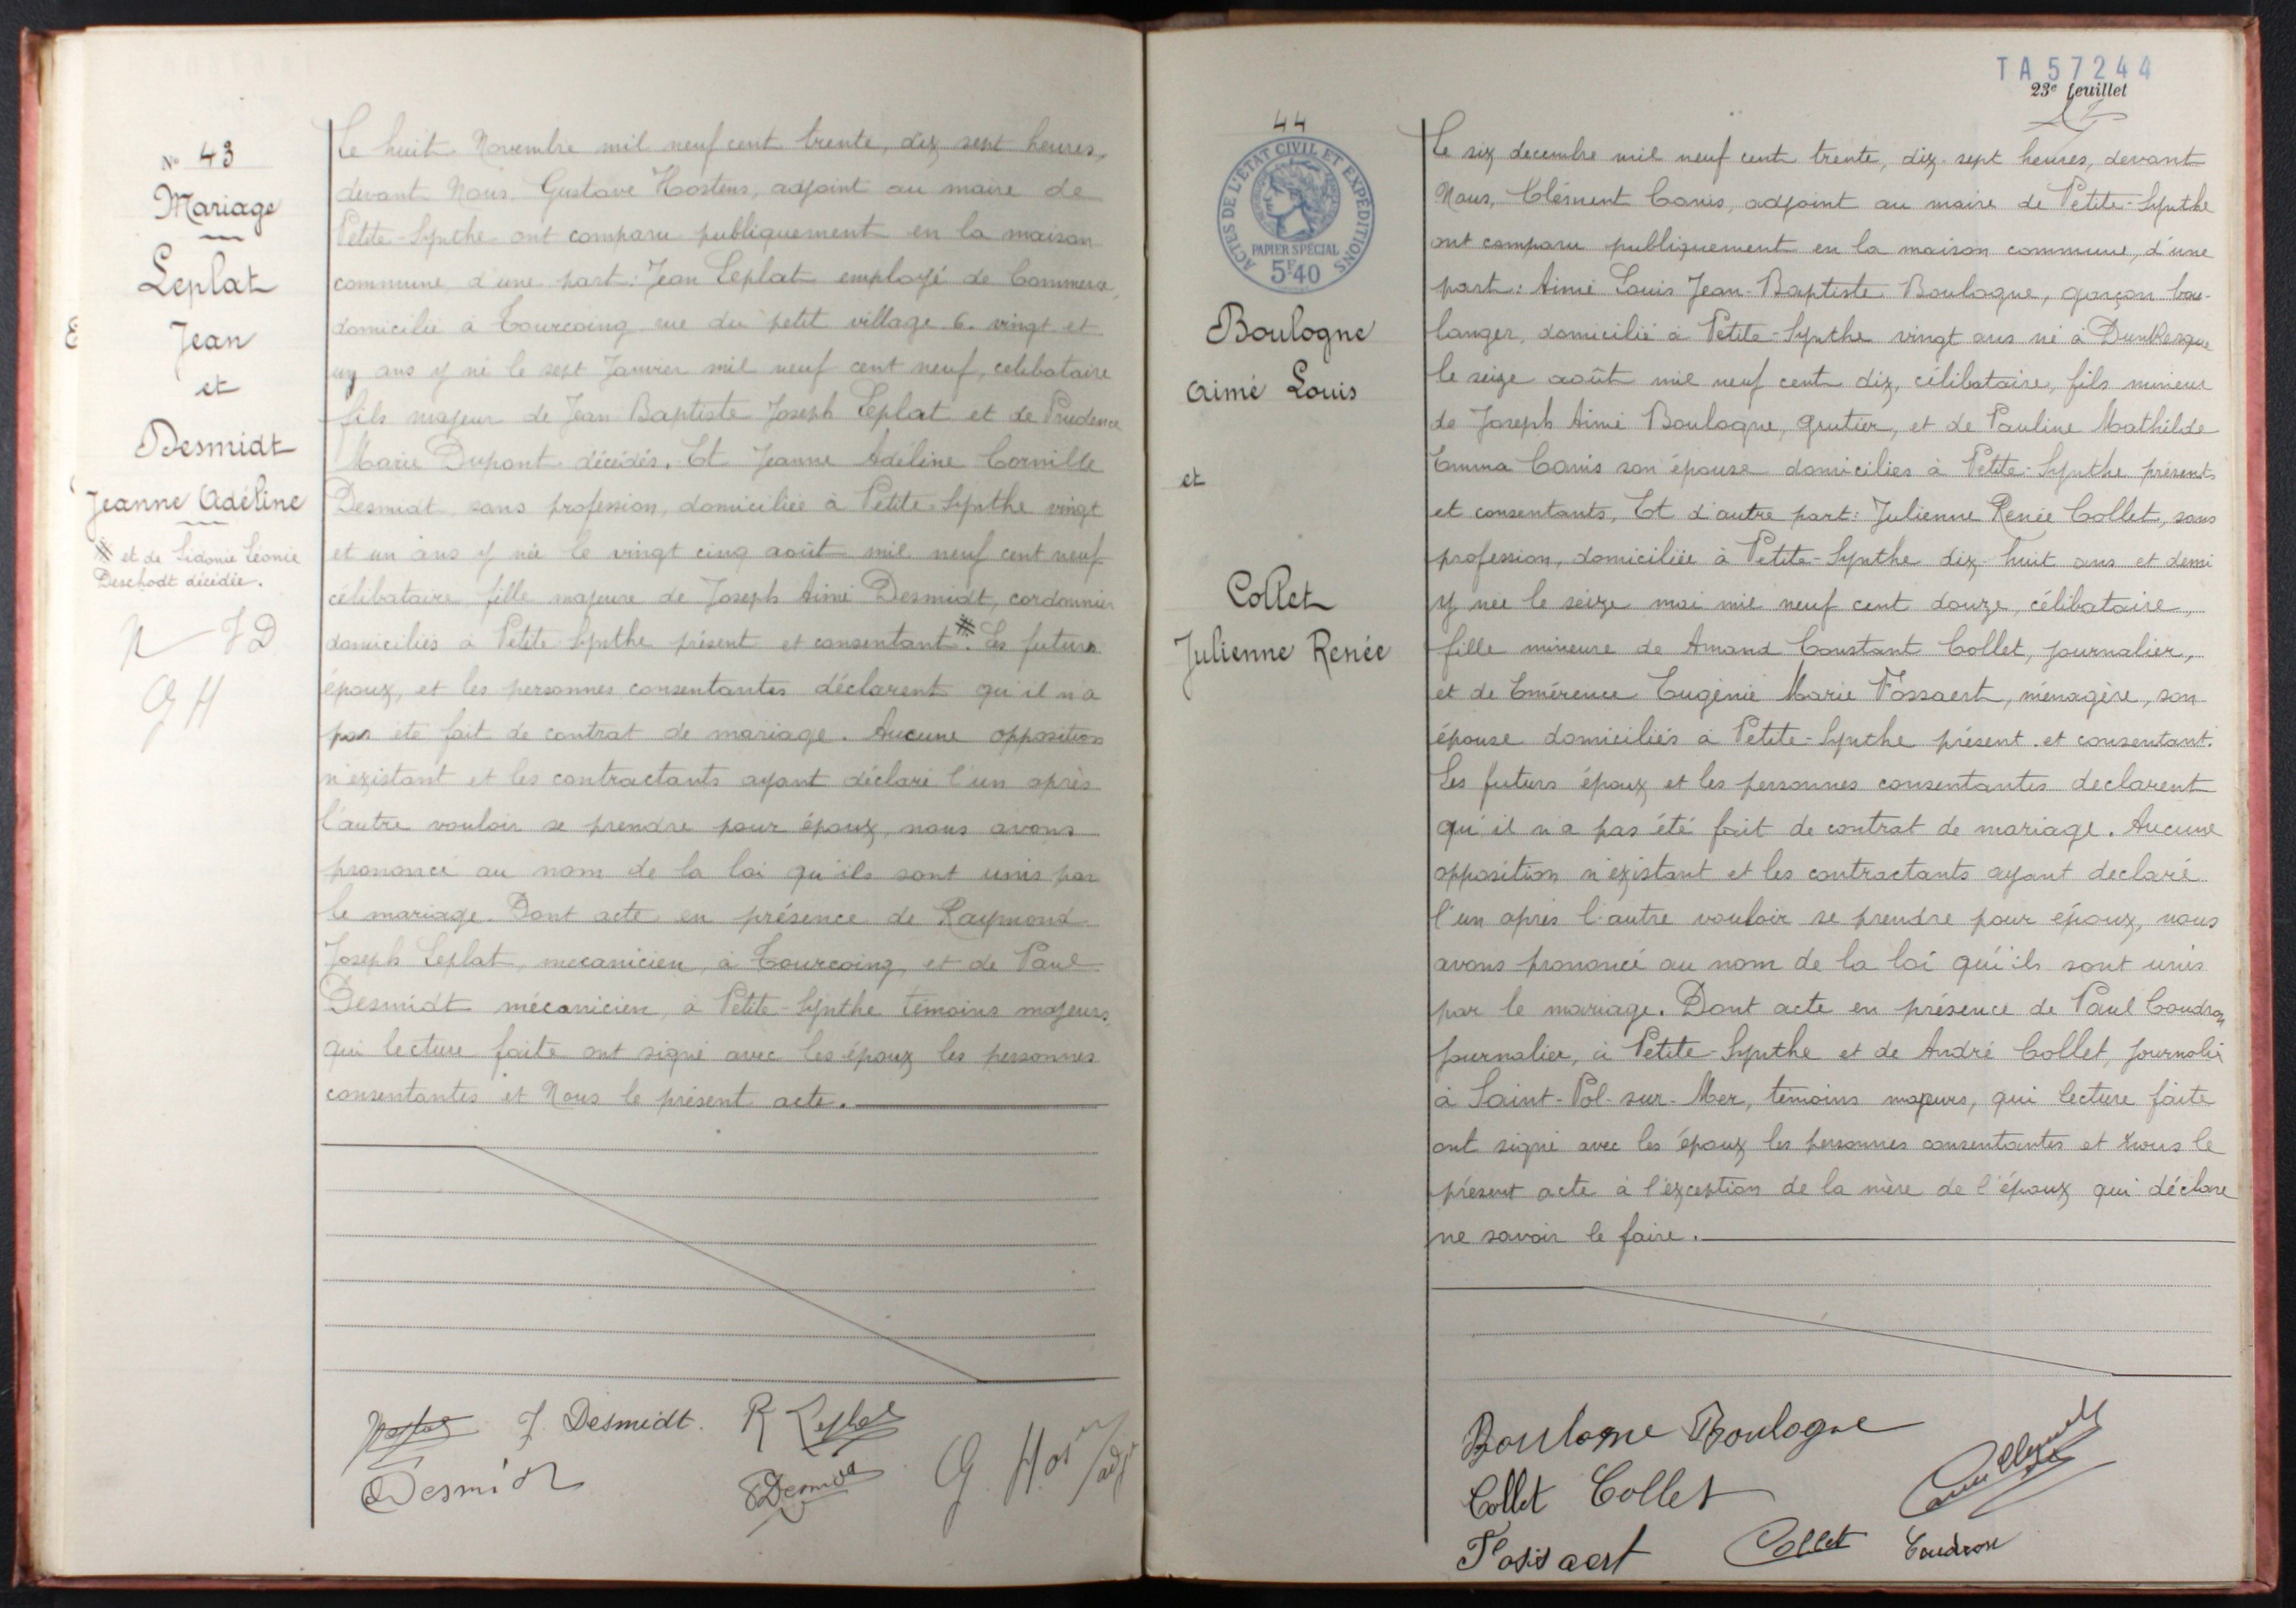 N° 43
Mariage
Leplat
Jean
et
Desmidt
Jeanne Adéline
# et de Sidonie Léonie
Deschodt décédée.
J D
G H
Le huit Novembre mil neuf cent trente, dix sept heures,
devant Nous, Gustave Hostens, adjoint au maire de
Petite-Synthe ont comparu publiquement en la maison
commune, d'une part: Jean Leplat employé de Commerce,
domicilié à Tourcoing rue du petit village 6. vingt et
un ans y né le sept Janvier mil neuf cent neuf, celibataire
fils majeur de Jean Baptiste Joseph Leplat et de Prudence
Marie Dupont décédés. Et Jeanne Adéline Cornille
Desmidt sans profession, domiciliée à Petite-Synthe vingt
et un ans y née le vingt cinq août mil neuf cent neuf
célibataire fille majeure de Joseph Aimé Desmidt, cordonnier
domiciliés à Petite Synthe présent et consentant #. Les futurs
époux, et les personnes consentantes déclarent qu'il n'a
pas été fait de contrat de mariage. Aucune opposition
n'existant et les contractants ayant déclaré l'un après
l'autre vouloir se prendre pour époux, nous avons
prononcé au nom de la loi qu'ils sont unis par
le mariage. Dont acte en présence de Raymond
Joseph Leplat, mecanicien, à Tourcoing, et de Paul
Desmidt mécanicien, à Petite-Synthe témoins majeurs,
qui lecture faite ont signé avec les époux les personnes
consentantes et Nous le présent acte.
J. Desmidt. R Leplat
Desmidt
G. Hos adjt
TA 57244
23e feuillet
44
ACTES DE L'ÉTAT CIVIL ET EXPÉDITIONS
PAPIER SPÉCIAL
5F40
Boulogne
Aimé Louis
et
Collet
Julienne Renée
Le six decembre mil neuf cent trente, dix-sept heures, devant
Nous, Clément Canis, adjoint au maire de Petite-Synthe
ont comparu publiquement en la maison commune, d'une
part: Aimé Louis Jean-Baptiste Boulogne, garçon bou-
langer, domicilié à Petite-Synthe vingt ans né à Dunkerque
le seize août mil neuf cent dix, célibataire, fils mineur
de Joseph Aimé Boulogne, grutier, et de Pauline Mathilde
Emma Canis son épouse domiciliés à Petite-Synthe présents
et consentants, Et d'autre part: Julienne Renée Collet, sans
profession, domiciliée à Petite-Synthe dix-huit ans et demi
y née le seize mai mil neuf cent douze, célibataire,
fille mineure de Amand Constant Collet, journalier,
et de Emérence Eugénie Marie Fossaert, ménagère, son
épouse domiciliés à Petite-Synthe présent et consentant.
Les futurs époux et les personnes consentantes declarent
qu'il n'a pas été fait de contrat de mariage. Aucune
opposition n'existant et les contractants ayant declaré
l'un après l'autre vouloir se prendre pour époux, nous
avons prononcé au nom de la loi qu'ils sont unis
par le mariage. Dont acte en présence de Paul Coudron
journalier, à Petite-Synthe et de André Collet, journalier
à Saint-Pol-sur-Mer, témoins majeurs, qui lecture faite
ont signé avec les époux les personnes consentantes et nous le
présent acte à l'exception de la mère de l'époux qui déclare
ne savoir le faire.
Boulogne Boulogne
Collet Collet
Fossaert Collet Coudron